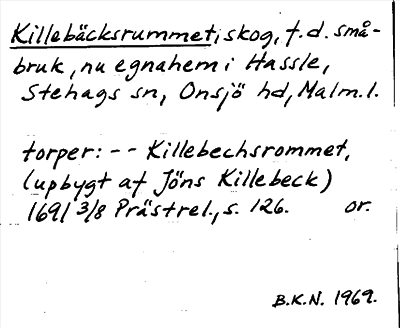 Killebäcksrummet, skog, f.d. små-
bruk, nu egnahem i Hassle,
Stehags sn, Onsjö hd, Malm.l.
torper: -- Killebechsrommet,
(upbygt af Jöns Killebeck)
1691 3/8 Prästrel., s. 126. or.
B.K.N. 1969.